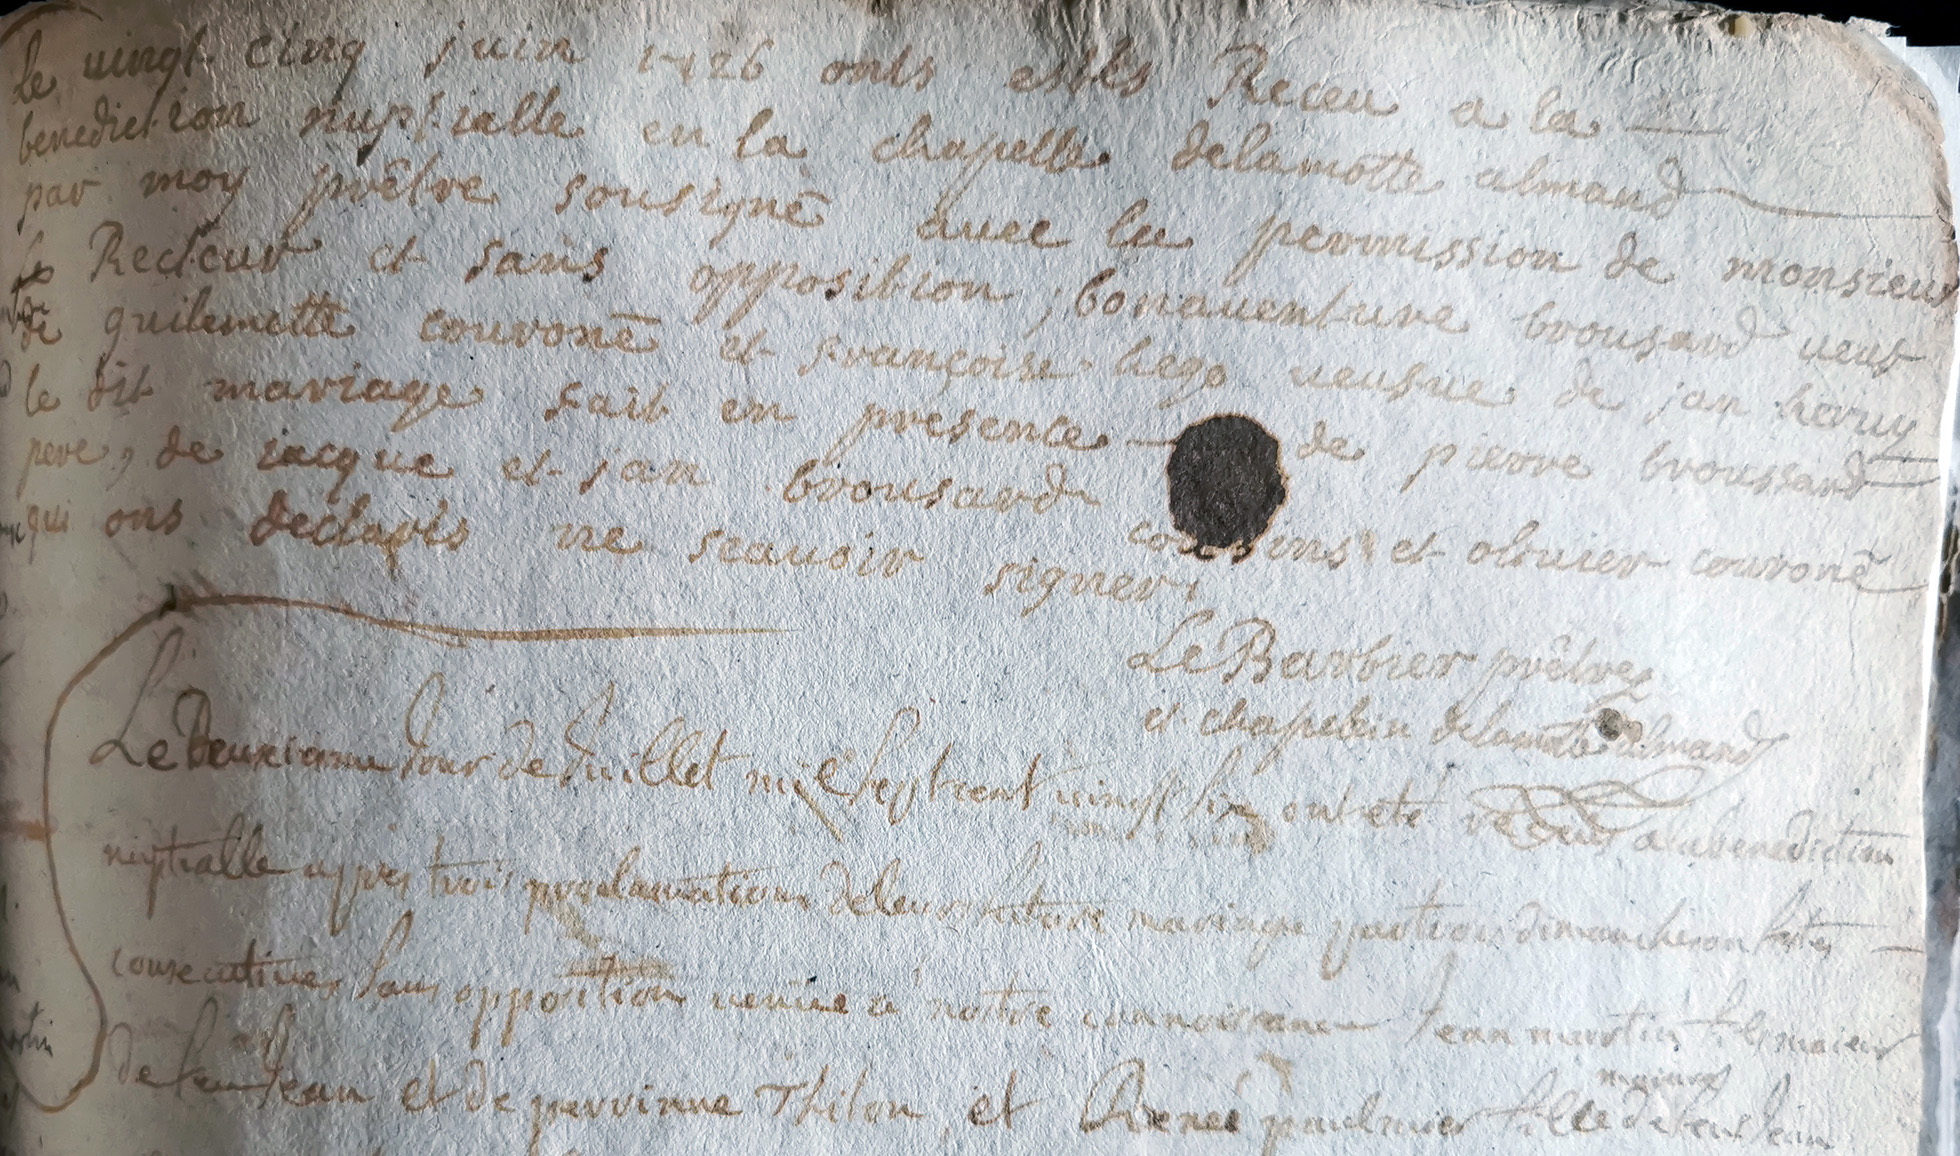 le vingt cinq juin 1726 onts estés Receu a la
benediction nuptialle en la chapelle delamotte almand
par moy prêtre sousigné avec la permission de monsieur
le Recteur et sans opposition, bonaventure brousard veuf
de guilemette couroné et françoise hego veufve de jan hervy
le dit mariage fait en presence de pierre broussard
pere, de iacque et jan brousard cousins et olivier couroné
qui ons declarés ne scavoir signer,
Le Barbier prêtre
et chapelain delamotte almand
Le deuxieme Jour de Juillet mil Septcent vingt six ont été receus a la benediction
nuptialle apprés trois proclamations de leur future mariage par trois dimanches ou festes
consecutives sans opposition venue a notre connoissance Jean martin fils majeur
de feu Jean et de perrinne Thilon, et Renée paulmier fille majeure de feu Jean